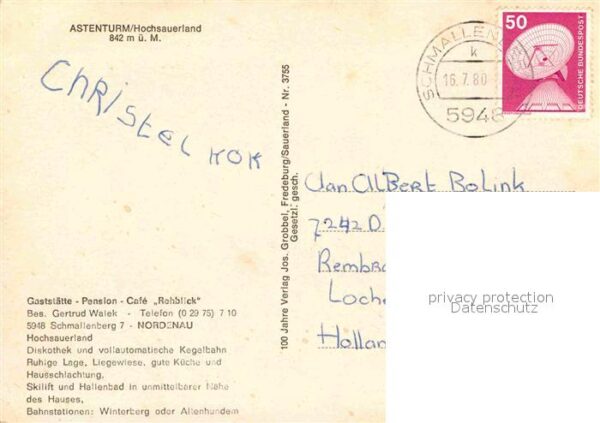 ASTENTURM/Hochsauerland
842 m ü. M.
Christel KOK
Gaststätte - Pension - Café „Rehblick"
Bes. Gertrud Walek - Telefon (0 29 75) 7 10
5948 Schmallenberg 7 - NORDENAU
Hochsauerland
Diskothek und vollautomatische Kegelbahn
Ruhige Lage, Liegewiese, gute Küche und
Hausschlachtung,
Skilift und Hallenbad in unmittelbarer Nähe
des Hauses,
Bahnstationen: Winterberg oder Altenhundem
100 Jahre Verlag Jos. Grobbel, Fredeburg/Sauerland - Nr. 3755
Gesetzl. gesch.
SCHMALLEN
k
16.7.80
5948
50
DEUTSCHE BUNDESPOST
Jan Albert Bolink
7242 D
Rembra
Loche
Hollan
privacy protection
Datenschutz